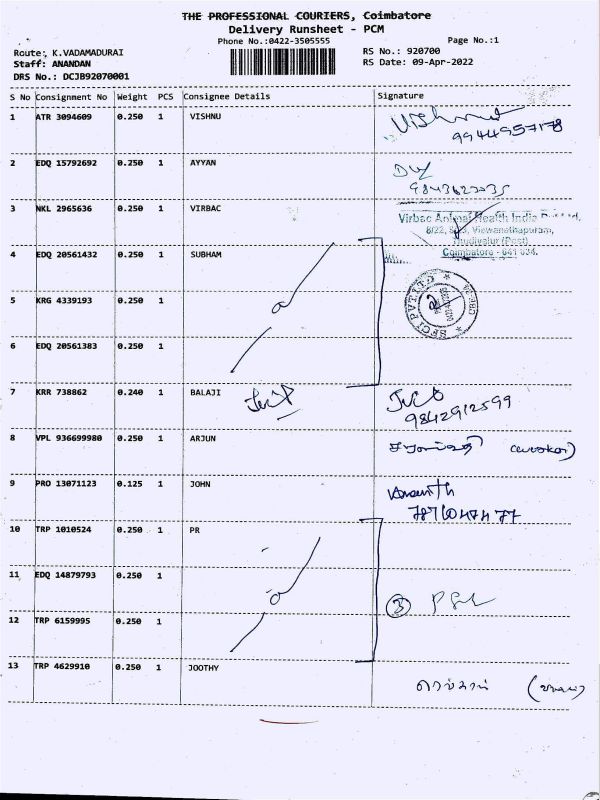 THE PROFESSIONAL COURIERS, Coimbatore
Delivery Runsheet - PCM
Phone No.:0422-3505555
Page No.:1
Route: K.VADAMADURAI
RS No.: 920700
Staff: ANANDAN
RS Date: 09-Apr-2022
DRS No.: DCJB92070001
S No Consignment No Weight PCS Consignee Details Signature
1 ATR 3094609 0.250 1 VISHNU
9944957178
2 EDQ 15792692 0.250 1 AYYAN
3 NKL 2965636 0.250 1 VIRBAC
Virbac Animal Health India
Coimbatore - 641 034.
4 EDQ 20561432 0.250 1 SUBHAM
5 KRG 4339193 0.250 1
6 EDQ 20561383 0.250 1
7 KRR 738862 0.240 1 BALAJI
9842912599
8 VPL 936699980 0.250 1 ARJUN
9 PRO 13071123 0.125 1 JOHN
10 TRP 1010524 0.250 1 PR
11 EDQ 14879793 0.250 1
3
12 TRP 6159995 0.250 1
13 TRP 4629910 0.250 1 JOOTHY